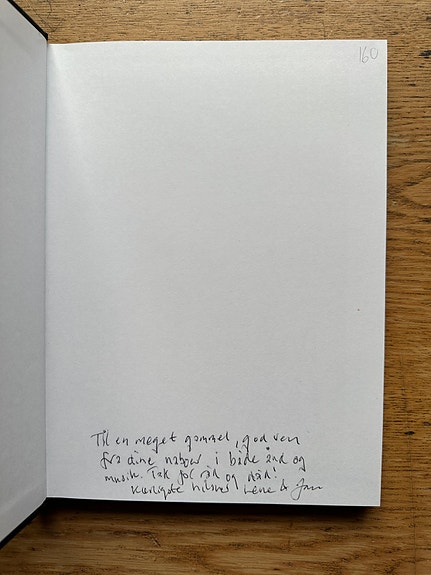 160
Til en meget gammel, god ven
fra dine naboer i både ånd og
musik. Tak for råd og dåd!
Kærligste hilsner Lene &